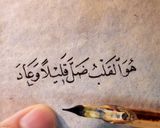 هُوَ القَلْبُ ضَلَّ قَلِيْلاً وَعَادَ